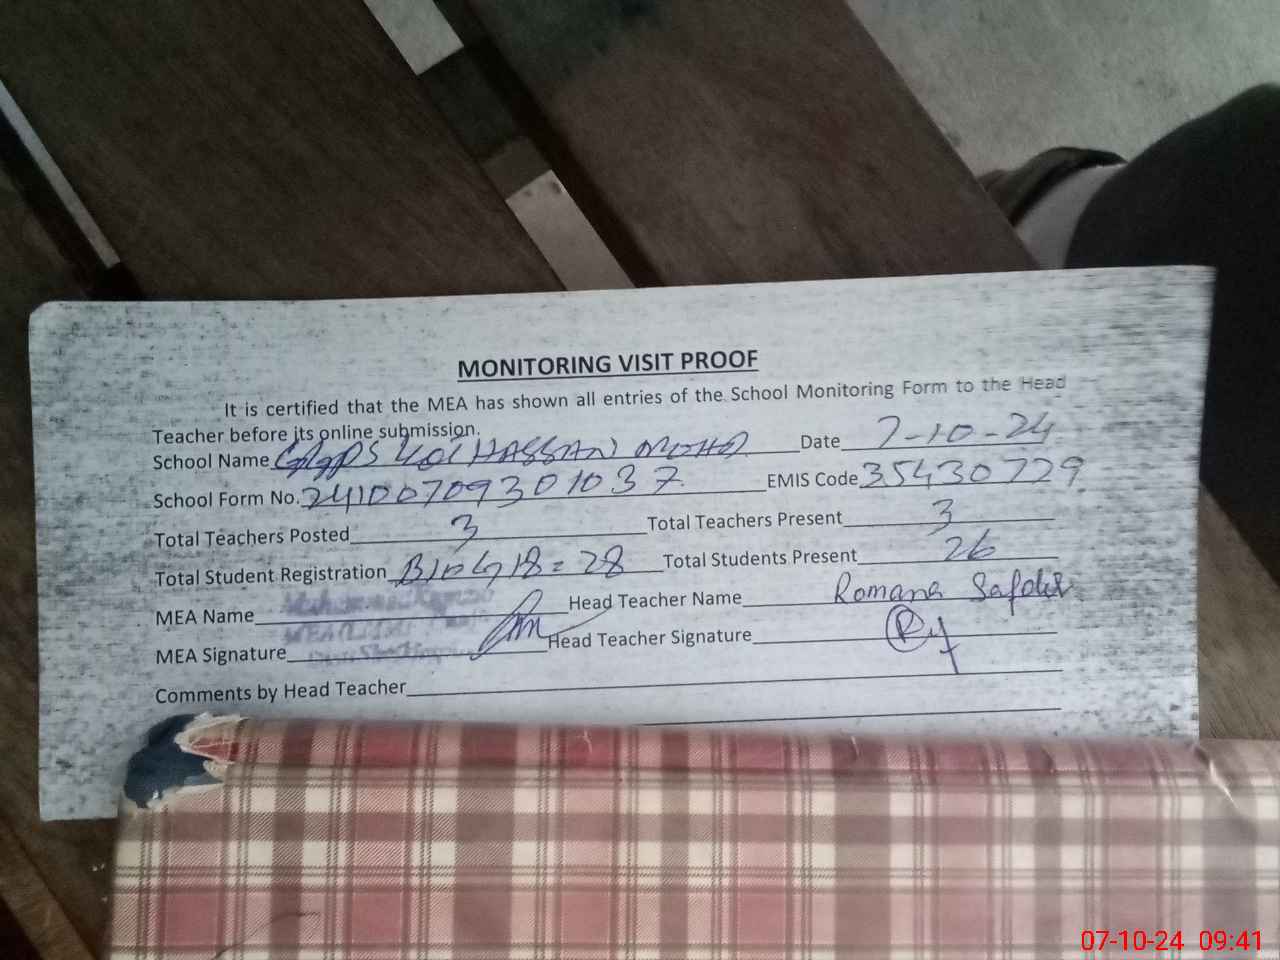 MONITORING VISIT PROOF
It is certified that the MEA has shown all entries of the School Monitoring Form to the Head
Teacher before its online submission.
School Name GGPS Kot HASSAN MOHD Date 7-10-24
School Form No. 24100709301037 EMIS Code 35430729
Total Teachers Posted 3 Total Teachers Present 3
Total Student Registration B10 G18 = 28 Total Students Present 26
MEA Name Head Teacher Name Romana Safdar
MEA Signature Head Teacher Signature
Comments by Head Teacher
07-10-24 09:41